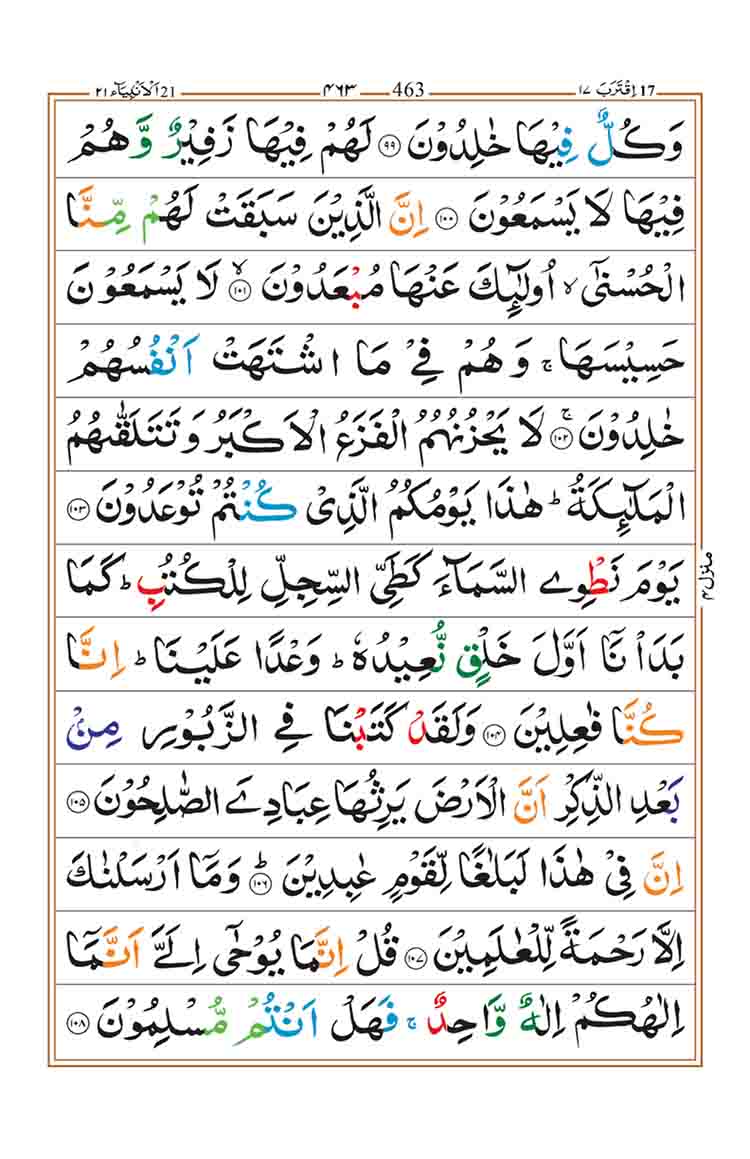 17 اِقْتَرَبَ ١٧ 463 ۴۶۳ 21 اَلْاَنْۢبِيَآء ٢١
وَكُلٌّ فِيْهَا خٰلِدُوْنَ ﴿٩٩﴾ لَهُمْ فِيْهَا زَفِيْرٌ وَّهُمْ
فِيْهَا لَا يَسْمَعُوْنَ ﴿١٠٠﴾ اِنَّ الَّذِيْنَ سَبَقَتْ لَهُمْ مِّنَّا
الْحُسْنٰٓى ۙ اُولٰٓئِكَ عَنْهَا مُبْعَدُوْنَ ﴿١٠١﴾ۙ لَا يَسْمَعُوْنَ
حَسِيْسَهَا ۚ وَهُمْ فِيْ مَا اشْتَهَتْ اَنْفُسُهُمْ
خٰلِدُوْنَ ﴿١٠٢﴾ۚ لَا يَحْزُنُهُمُ الْفَزَعُ الْاَكْبَرُ وَتَتَلَقّٰىهُمُ
الْمَلٰٓئِكَةُ ؕ هٰذَا يَوْمُكُمُ الَّذِيْ كُنْتُمْ تُوْعَدُوْنَ ﴿١٠٣﴾
يَوْمَ نَطْوِے السَّمَآءَ كَطَيِّ السِّجِلِّ لِلْكُتُبِ ؕ كَمَا
بَدَاْنَاۤ اَوَّلَ خَلْقٍ نُّعِيْدُهٗ ؕ وَعْدًا عَلَيْنَا ؕ اِنَّا
كُنَّا فٰعِلِيْنَ ﴿١٠٤﴾ وَلَقَدْ كَتَبْنَا فِے الزَّبُوْرِ مِنْۢ
بَعْدِ الذِّكْرِ اَنَّ الْاَرْضَ يَرِثُهَا عِبَادِےَ الصّٰلِحُوْنَ ﴿١٠٥﴾
اِنَّ فِيْ هٰذَا لَبَلٰغًا لِّقَوْمٍ عٰبِدِيْنَ ﴿١٠٦﴾ؕ وَمَاۤ اَرْسَلْنٰكَ
اِلَّا رَحْمَةً لِّلْعٰلَمِيْنَ ﴿١٠٧﴾ قُلْ اِنَّمَا يُوْحٰٓى اِلَےَّ اَنَّمَاۤ
اِلٰهُكُمْ اِلٰهٌ وَّاحِدٌ ۚ فَهَلْ اَنْتُمْ مُّسْلِمُوْنَ ﴿١٠٨﴾
منزل ۴